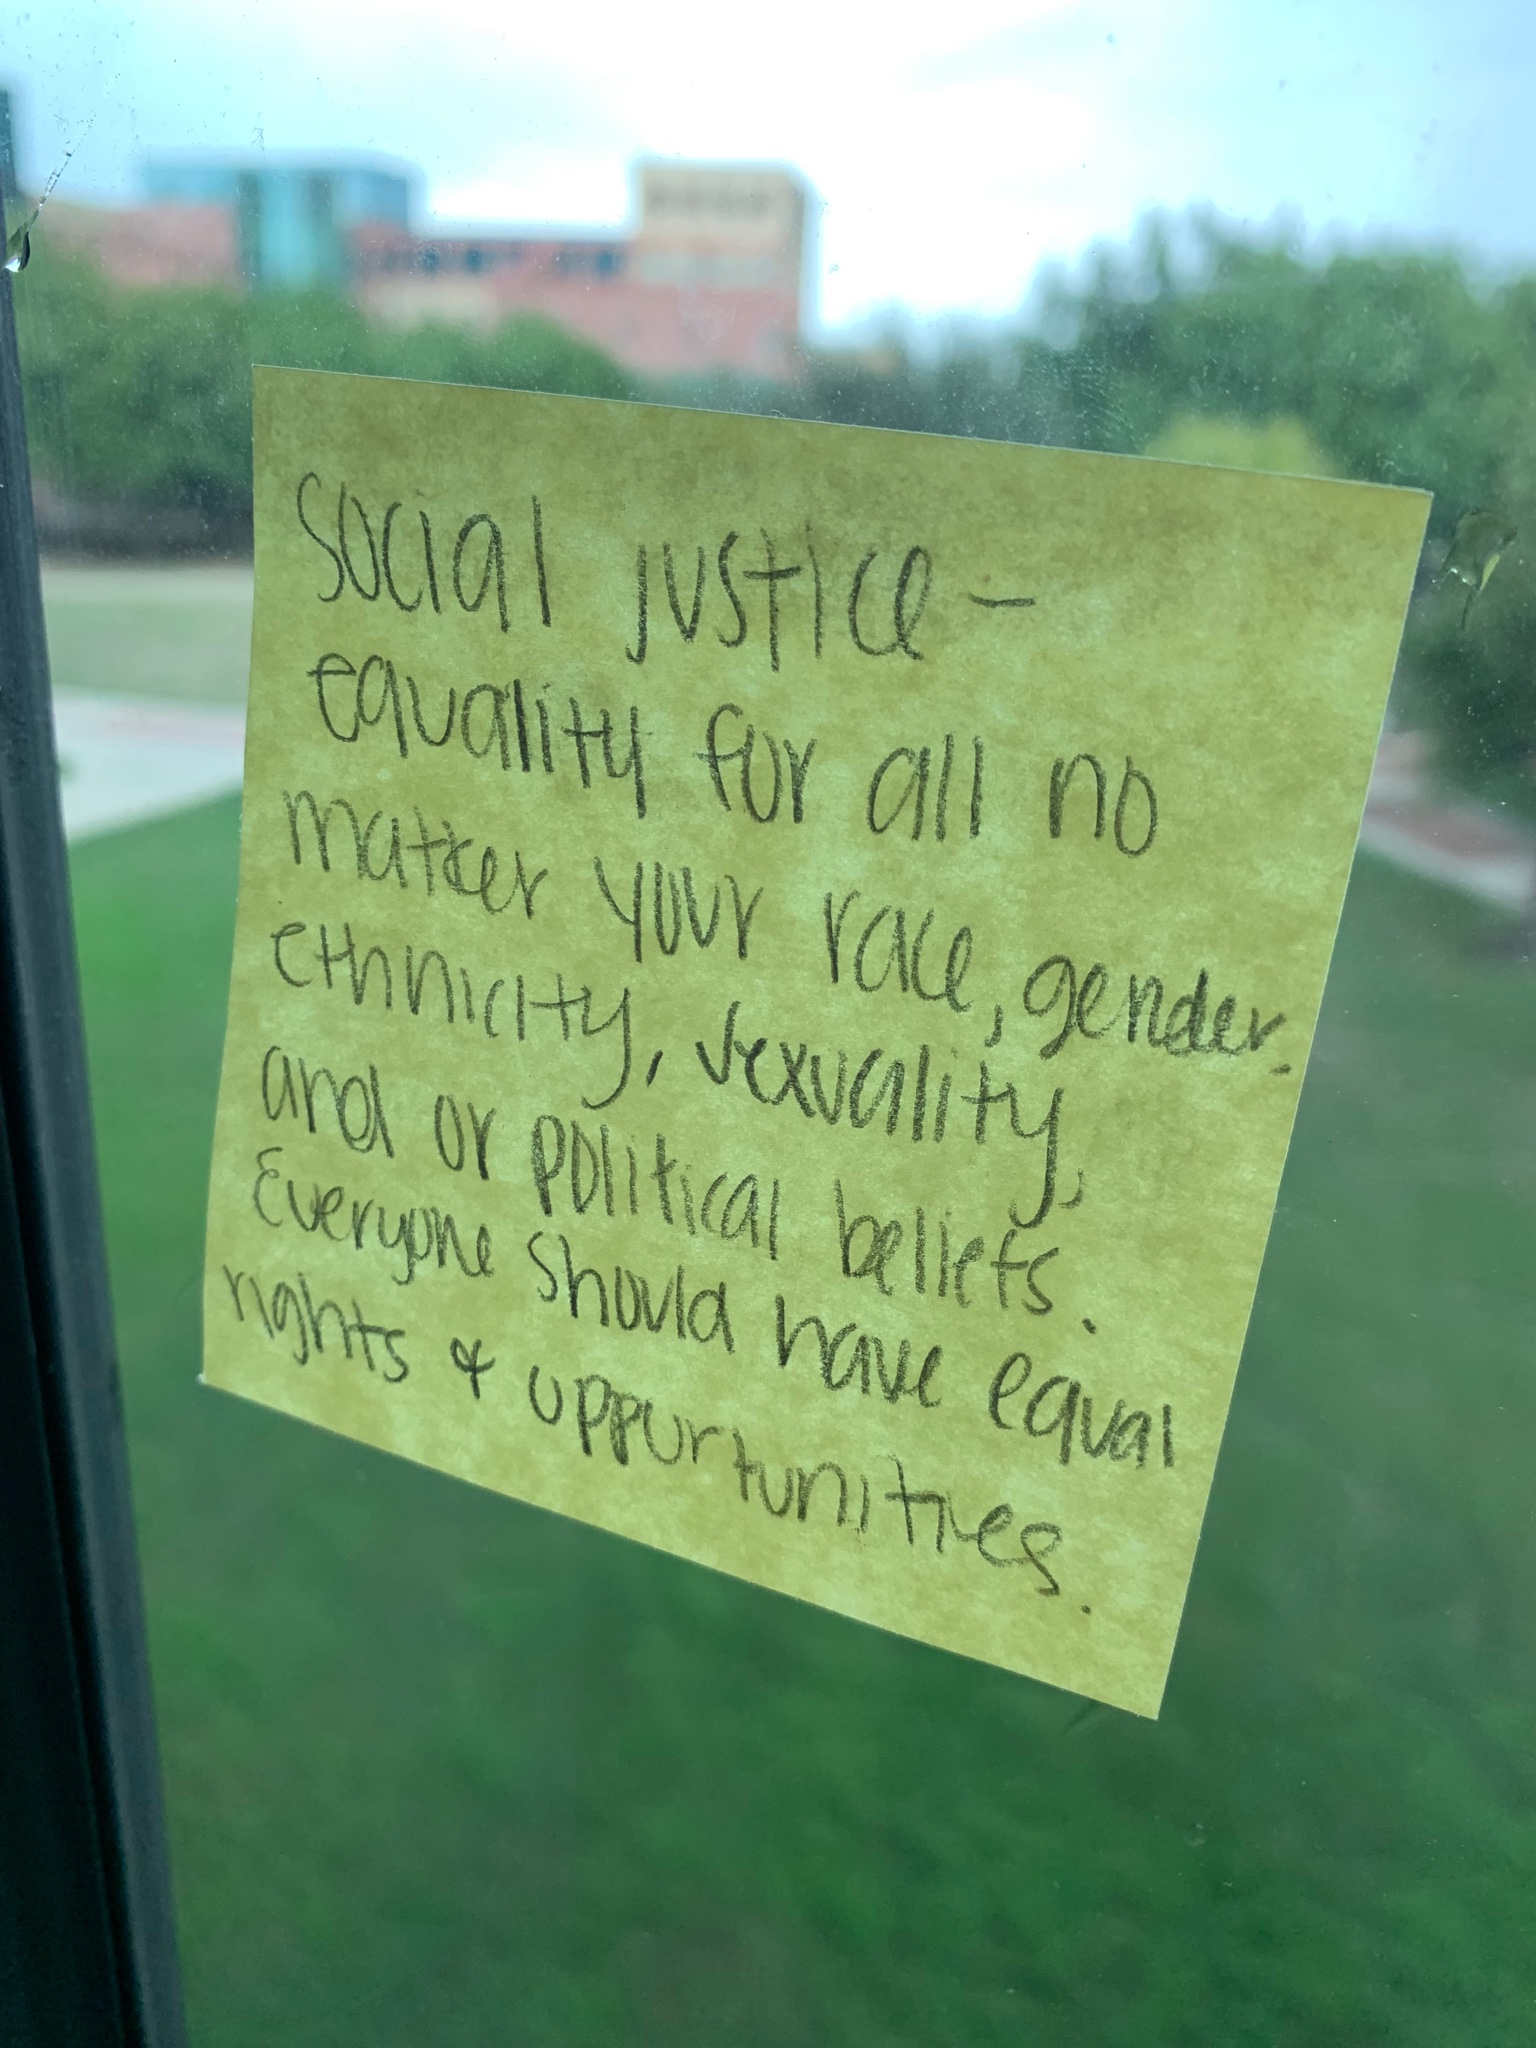 Social justice -
equality for all no
matter your race, gender.
ethnicity, sexuality,
and or political beliefs.
Everyone should have equal
rights & oppurtunities.